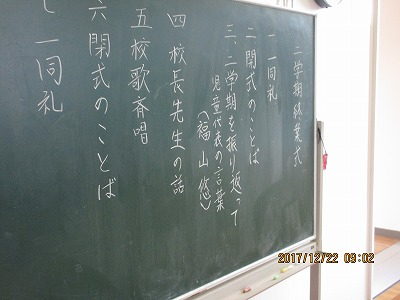 二学期終業式
一 一同礼
二 開式のことば
三、二学期を振り返って
児童代表の言葉
(福山悠)
四 校長先生の話
五 校歌斉唱
六 閉式のことば
一同礼
2017/12/22 09:02